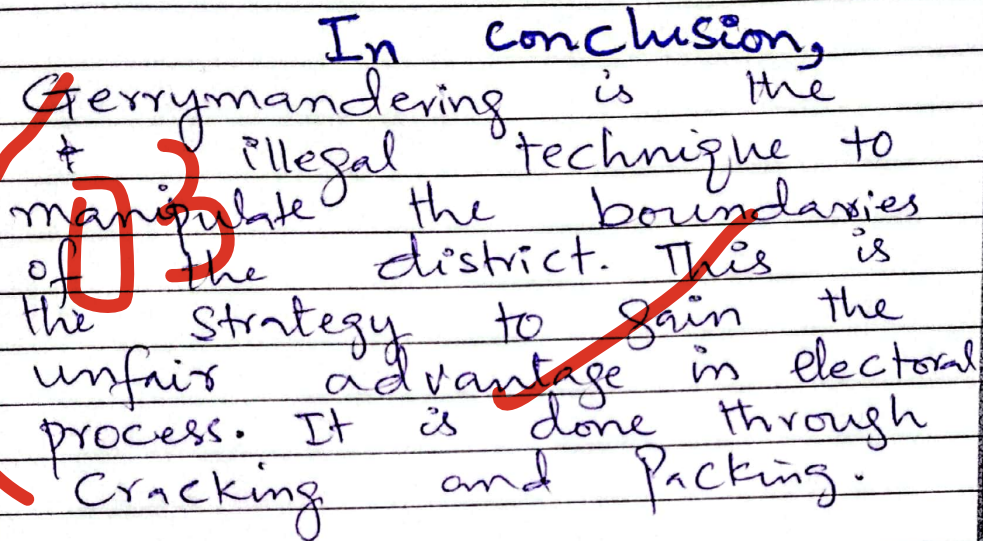 In conclusion,
Gerrymandering is the
illegal technique to
manipulate the boundaries
of the district. This is
the strategy to gain the
unfair advantage in electoral
process. It is done through
Cracking and Packing.
03